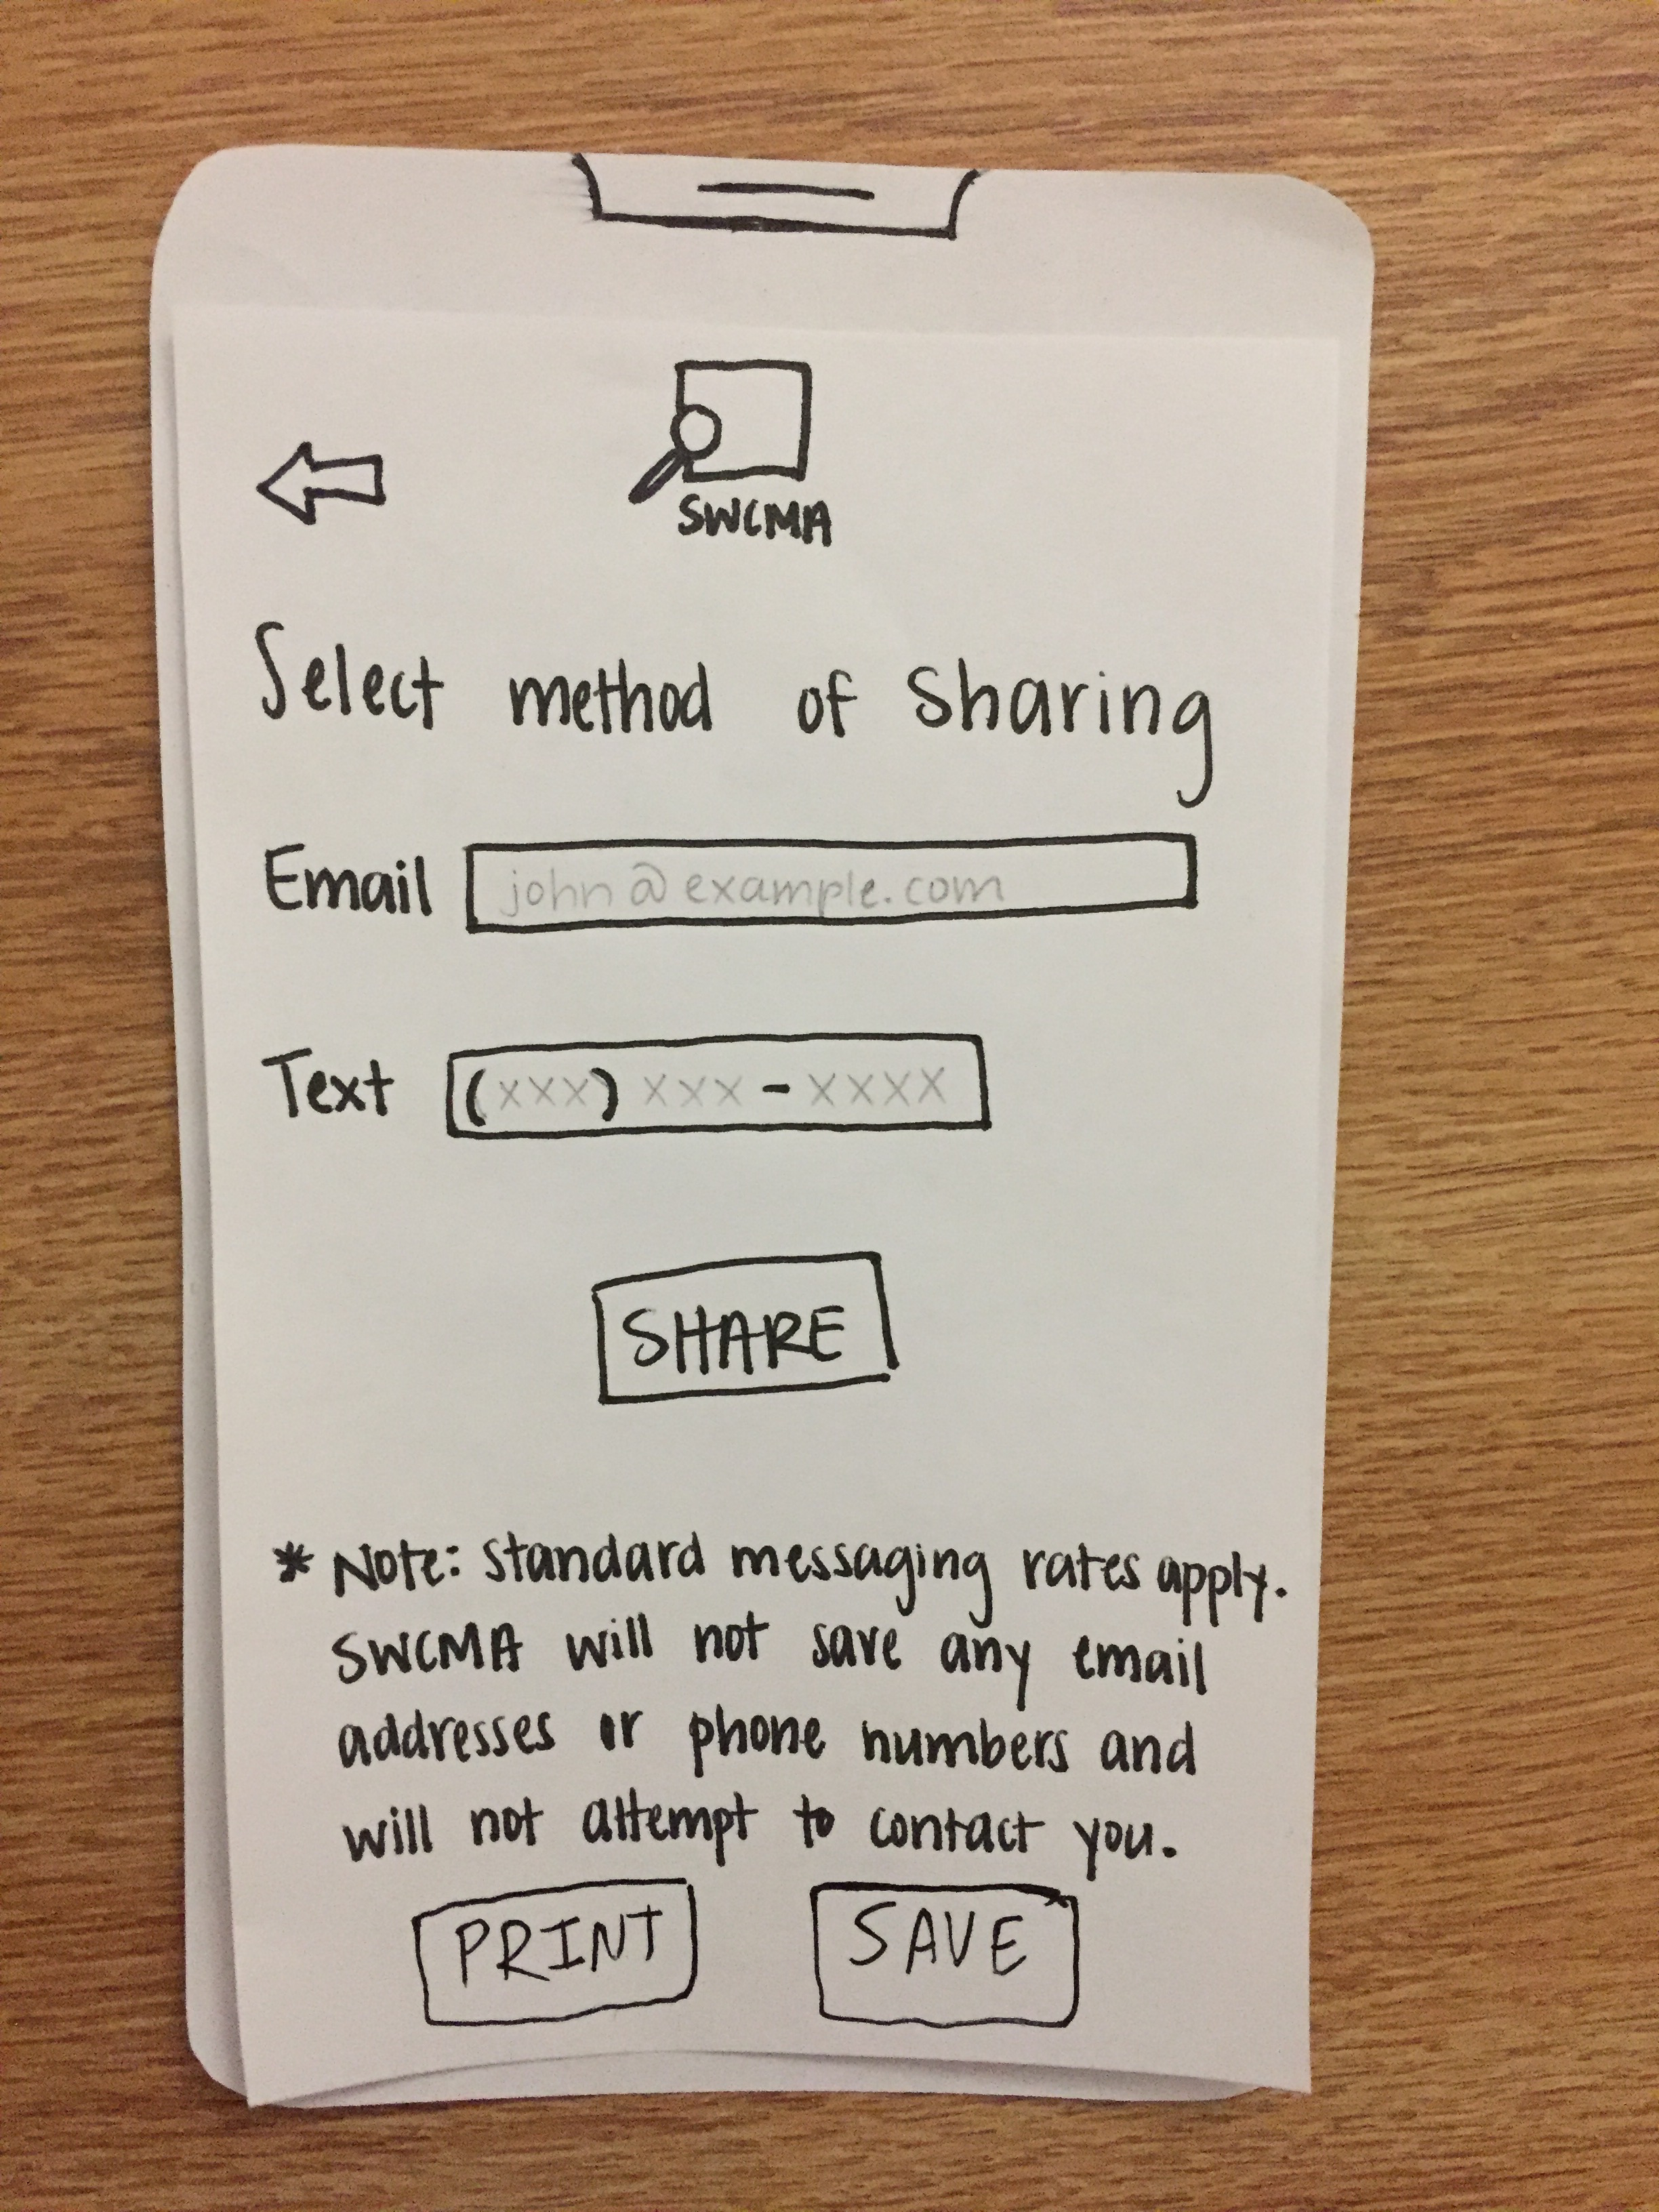 SWCMA
Select method of sharing
Email john@example.com
Text (xxx) xxx - xxxx
SHARE
* Note: standard messaging rates apply.
SWCMA will not save any email
addresses or phone numbers and
will not attempt to contact you.
PRINT SAVE